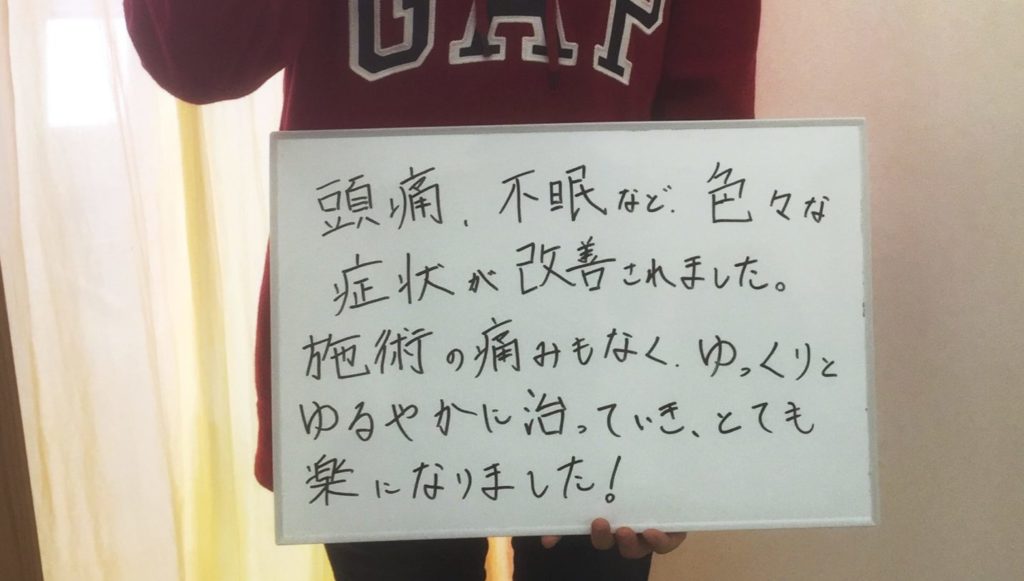 GAP
頭痛、不眠など、色々な
症状が改善されました。
施術の痛みもなく、ゆっくりと
ゆるやかに治っていき、とても
楽になりました!